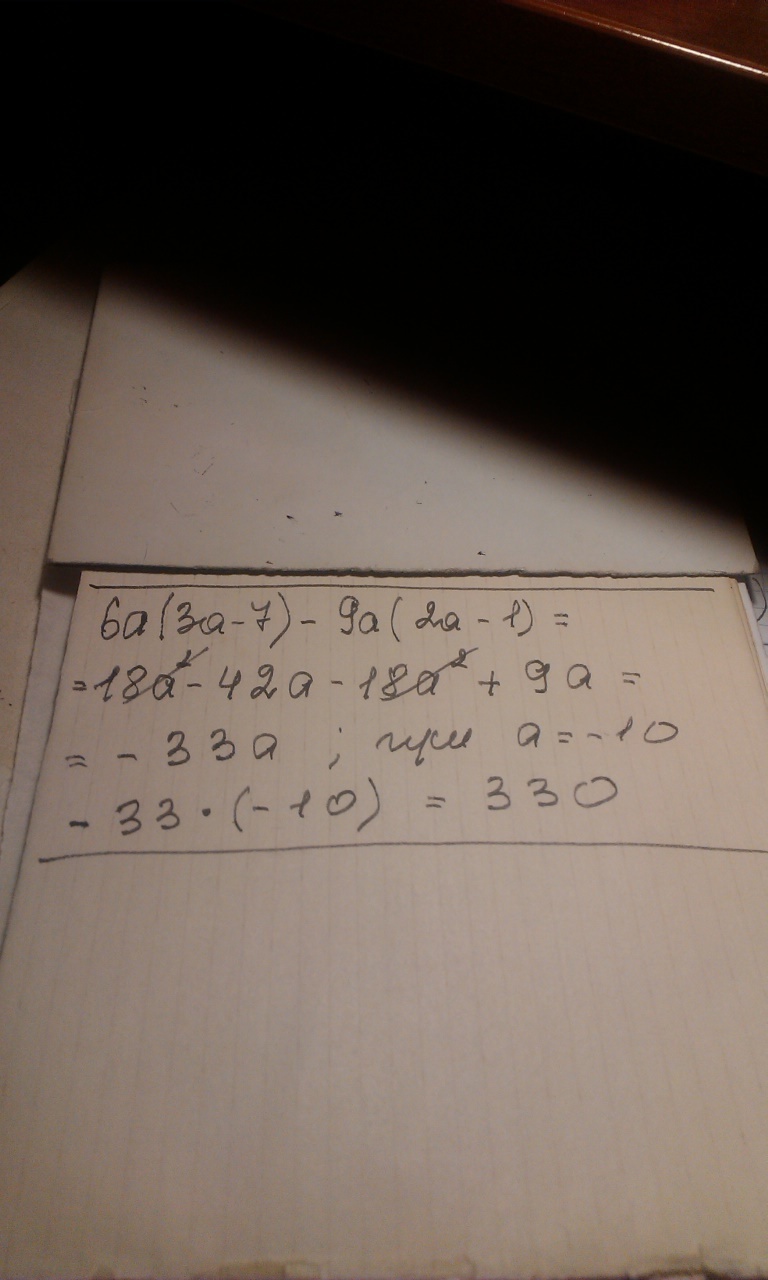 6a(3a-7)-9a(2a-1)=
=18a²-42a-18a²+9a=
=-33a ; при a=-10
-33·(-10) = 330